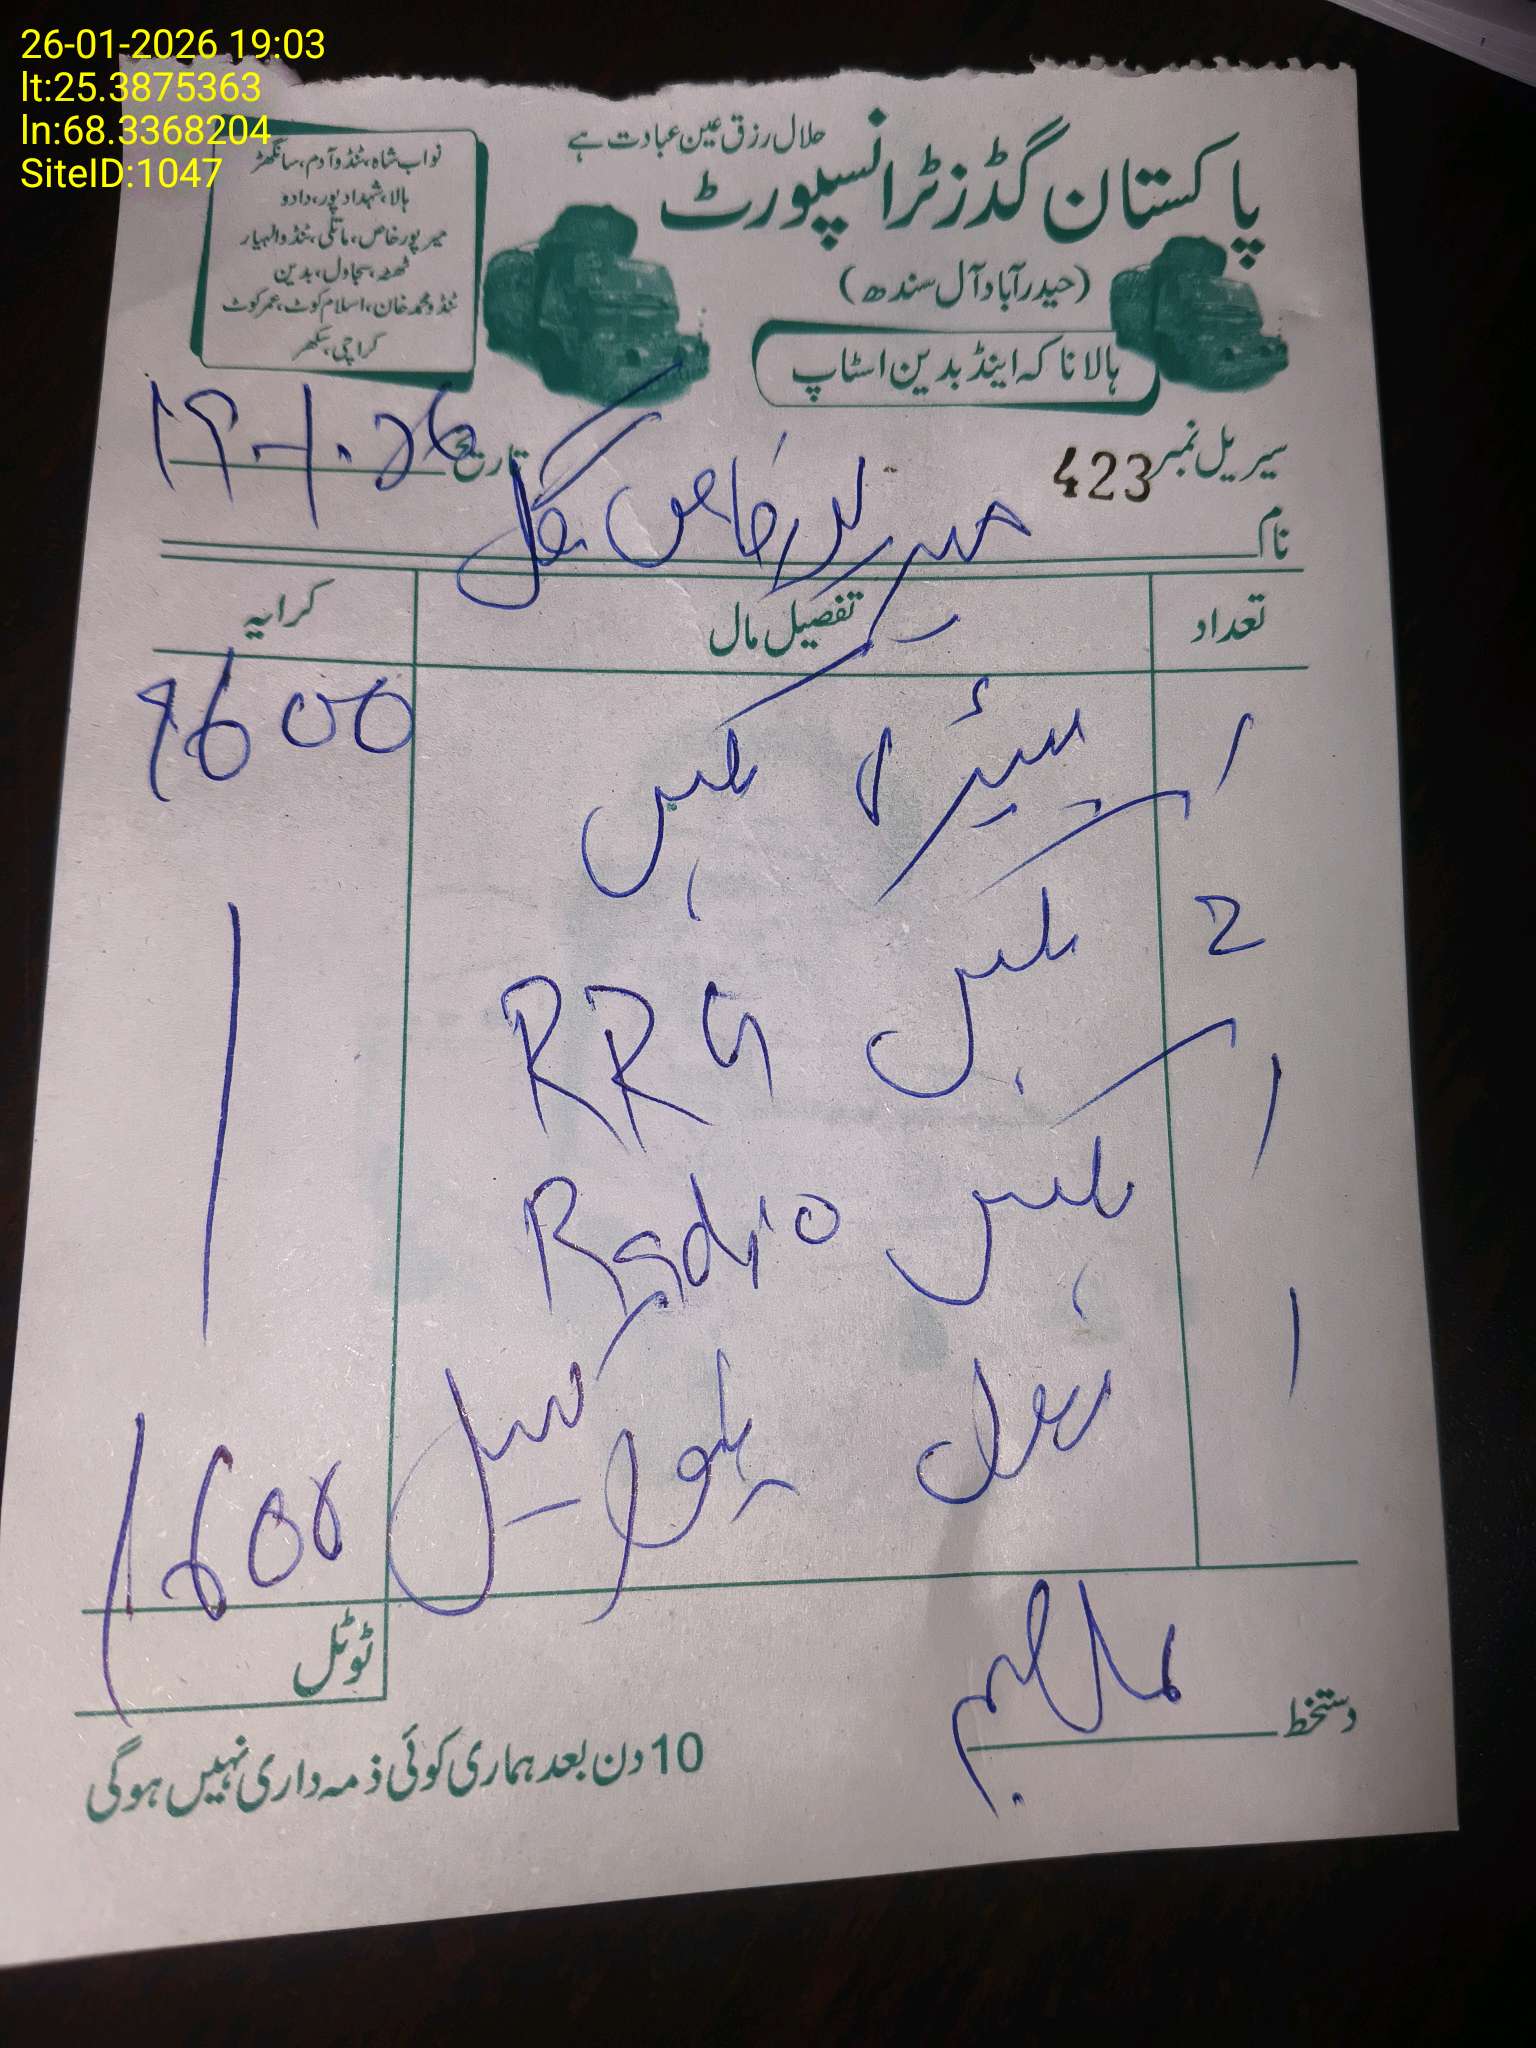 26-01-2026 19:03
lt:25.3875363
ln:68.3368204
SiteID:1047
حلال رزق عین عبادت ہے
پاکستان گڈز ٹرانسپورٹ
(حیدرآباد آل سندھ)
ہالا ناکہ اینڈ بدین اسٹاپ
نواب شاہ، ٹنڈو آدم، سانگھڑ
ہالا، شہداد پور، دادو
میر پور خاص، ماتلی، ٹنڈو الہیار
ٹھٹھہ، سجاول، بدین
ٹنڈو محمد خان، اسلام کوٹ، عمر کوٹ
کراچی، سکھر
سیریل نمبر 423
تاریخ 19-1-26
نام میرپورخاص
تعداد تفصیل مال کرایہ
1 بکس 1600
2 بکس RRU
1 بکس Radio
1
1600
ٹوٹل
دستخط
10 دن بعد ہماری کوئی ذمہ داری نہیں ہوگی